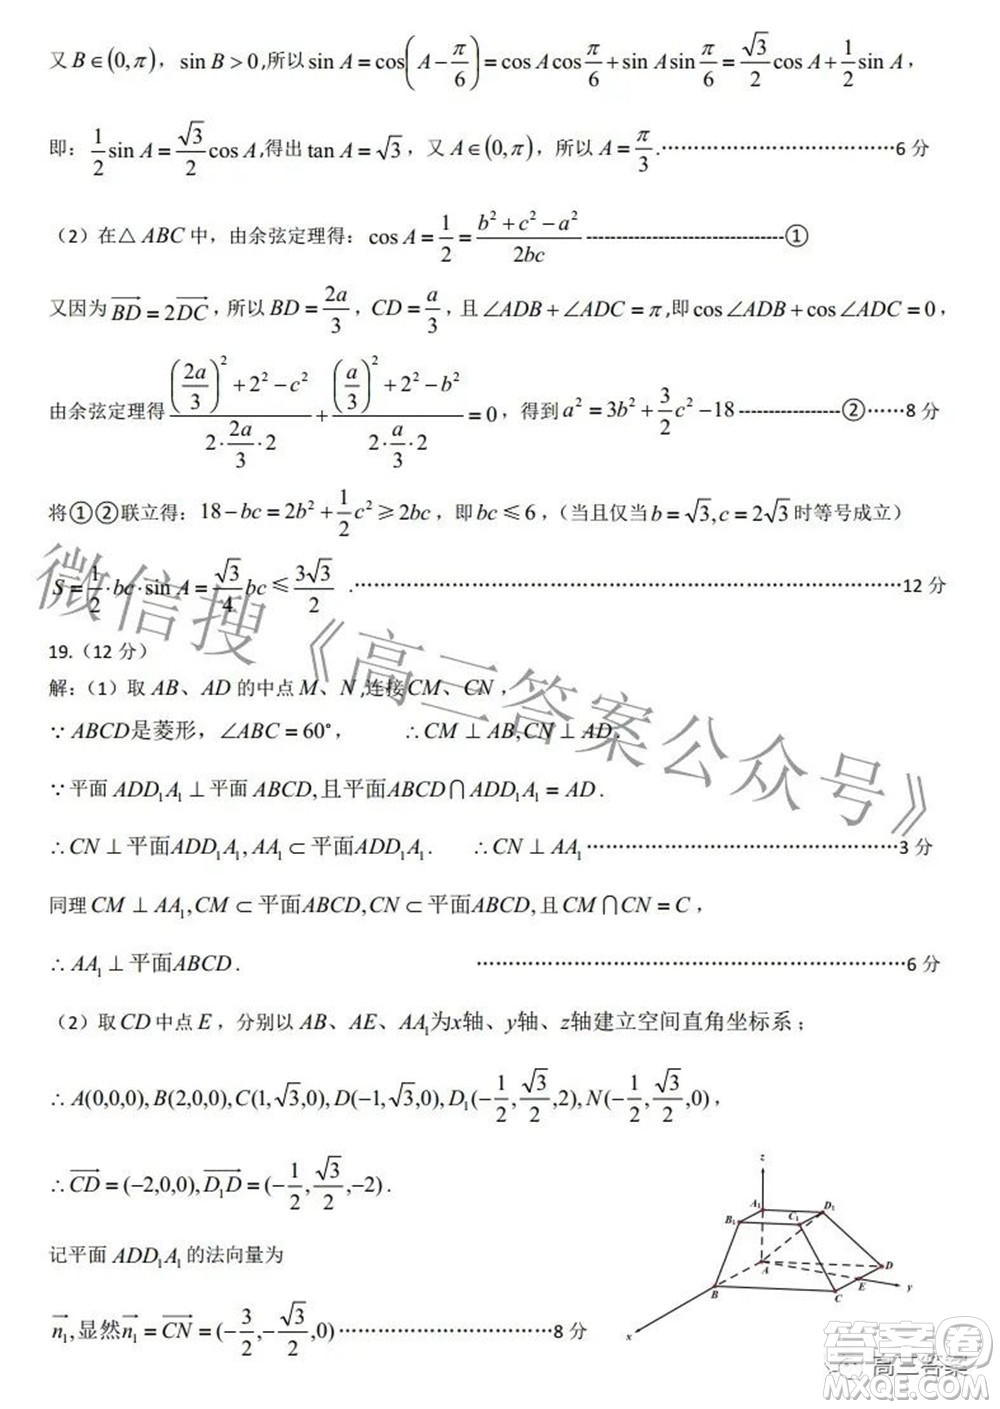 又 B∈(0,π)，sin B>0,所以 sin A=cos(A−π/6)=cos A cos π/6+sin A sin π/6=√3/2 cos A+1/2 sin A，
即：1/2 sin A=√3/2 cos A,得出 tan A=√3，又 A∈(0,π)，所以 A=π/3.…………………………………6 分
（2）在△ABC 中，由余弦定理得：cos A=1/2=(b²+c²−a²)/(2bc)----------------------------------①
又因为 \overrightarrow{BD}=2\overrightarrow{DC}，所以 BD=2a/3，CD=a/3，且∠ADB+∠ADC=π,即 cos∠ADB+cos∠ADC=0，
由余弦定理得 ((2a/3)²+2²−c²)/(2·2a/3·2)+((a/3)²+2²−b²)/(2·a/3·2)=0，得到 a²=3b²+3/2c²−18-----------------②……8 分
将①②联立得：18−bc=2b²+1/2c²≥2bc，即 bc≤6，（当且仅当 b=√3,c=2√3 时等号成立）
S=1/2·bc·sin A=√3/4 bc≤3√3/2 .………………………………………………………………………………12 分
19.（12 分）
解：（1）取 AB、AD 的中点 M、N,连接CM、CN，
∵ABCD是菱形，∠ABC=60°， ∴CM⊥AB,CN⊥AD.
∵平面 ADD₁A₁⊥平面 ABCD,且平面ABCD⋂ADD₁A₁=AD.
∴CN⊥平面ADD₁A₁,AA₁⊂平面ADD₁A₁. ∴CN⊥AA₁…………………………………………3 分
同理 CM⊥AA₁,CM⊂平面ABCD,CN⊂平面ABCD,且 CM⋂CN=C，
∴AA₁⊥平面ABCD. ………………………………………………………………6 分
（2）取 CD 中点 E，分别以 AB、AE、AA₁为x轴、y轴、z轴建立空间直角坐标系；
∴A(0,0,0),B(2,0,0),C(1,√3,0),D(−1,√3,0),D₁(−1/2,√3/2,2),N(−1/2,√3/2,0)，
∴\overrightarrow{CD}=(−2,0,0),\overrightarrow{D₁D}=(−1/2,√3/2,−2).
记平面 ADD₁A₁ 的法向量为
\overrightarrow{n₁},显然\overrightarrow{n₁}=\overrightarrow{CN}=(−3/2,−√3/2,0)……………………………8 分
z
A₁
D₁
B₁
C₁
A
D
E
y
B
C
x
微信搜《高三答案公众号》
答案圈
高三答案
MXQE.COM